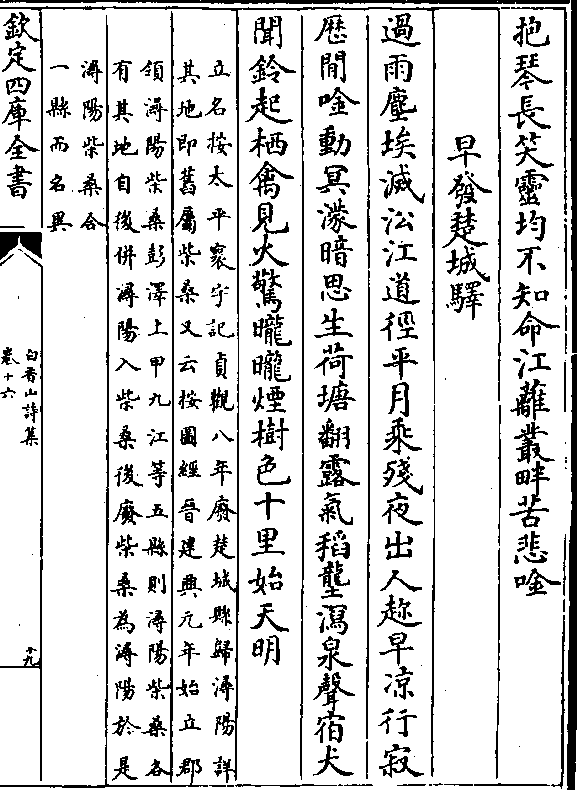 抱琴長笑靈均不知命江蘺叢畔苦悲唫
早發楚城驛
過雨塵埃滅㳂江道徑平月乘殘夜出人趂早凉行寂
歴閒唫動冥濛暗思生荷塘翻露氣稻壟瀉泉聲宿犬
聞鈴起栖禽見火驚曨曨煙樹色十里始天明
立名按太平寰宇記貞觀八年廢楚城縣歸潯陽詳
其地即舊屬柴桑又云按圖經晉建興元年始立郡
領潯陽柴桑彭澤上甲九江等五縣則潯陽柴桑各
有其地自後併潯陽入柴桑後廢柴桑為潯陽於是
潯陽柴桑合
一縣而名異
欽定四庫全書
白香山詩集
卷十六
十九